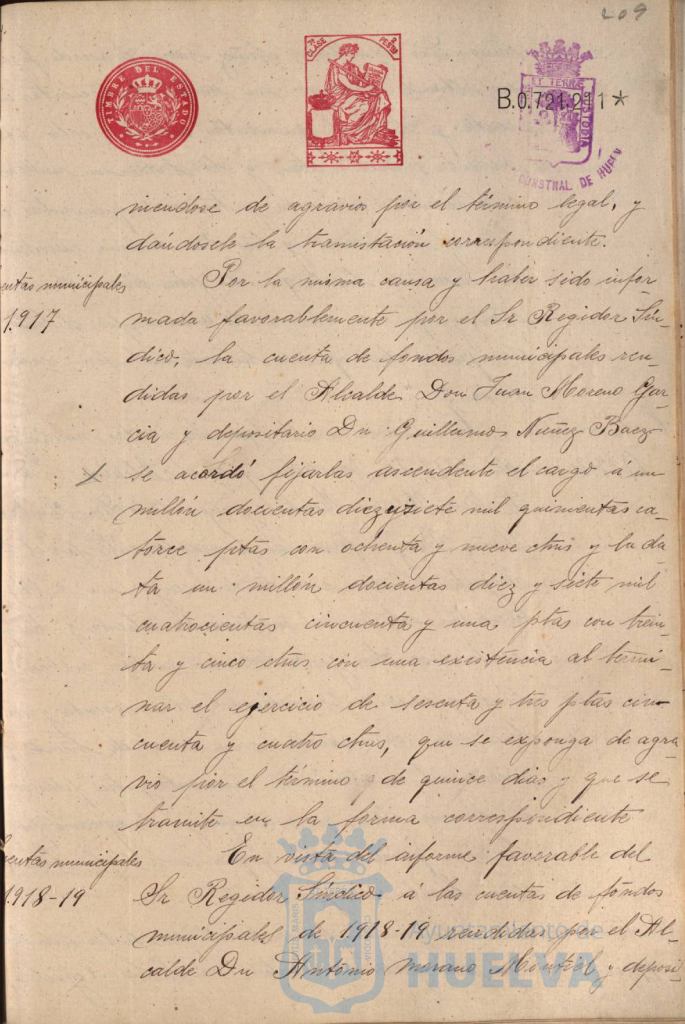 209
TIMBRE DEL ESTADO
7ª CLASE 2 PESETAS
B.0.721.211*
ET TERRÆ CUSTODIA
CONSTNAL. DE HUELV
niendose de agravios por el término legal, y
dándosele la tramitación correspondiente.
entas municipales
1.917
Por la misma causa y haber sido infor
mada favorablemente por el Sr Regidor Sín-
dico, la cuenta de fondos municipales ren-
didas por el Alcalde Don Juan Moreno Gar-
cia y depositario Dn Guillermo Nuñez Baez
se acordó fijarlas ascendente el cargo á un
millón docientas diez y siete mil quinientas ca-
torce ptas con ochenta y nueve ctms y la da-
ta un millón docientas diez y siete mil
cuatrocientas cincuenta y una ptas con trein-
ta y cinco ctms con una existencia al termi-
nar el ejercicio de sesenta y tres ptas cin-
cuenta y cuatro ctms, que se exponga de agra-
vio por el término de quince dias y que se
tramite en la forma correspondiente
entas municipales
1.918-19
En vista del informe favorable del
Sr Regidor Síndico á las cuentas de fondos
municipales de 1918-19 rendidas por el Al-
calde Dn Antonio Morano Montiel y deposi-
Ayuntamiento de
HUELVA